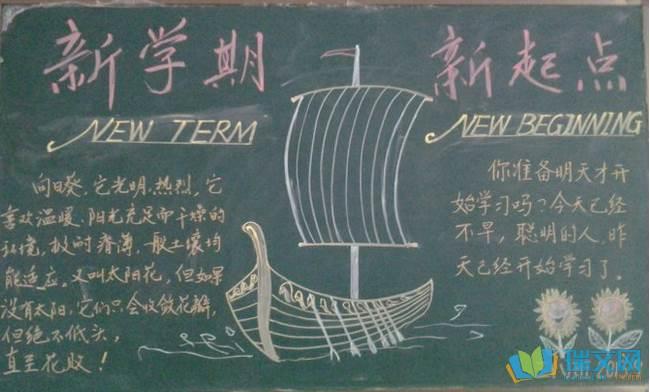 新学期
新起点
NEW TERM
NEW BEGINNING
向日葵,它光明,热烈,它
喜欢温暖,阳光充足而干燥的
环境,极耐瘠薄,一般土壤均
能适应。又叫太阳花,但如果
没有太阳,它们只会收敛花瓣,
但绝不低头,
直至花败!
你准备明天才开
始学习吗?今天已经
不早,聪明的人,昨
天已经开始学习了。